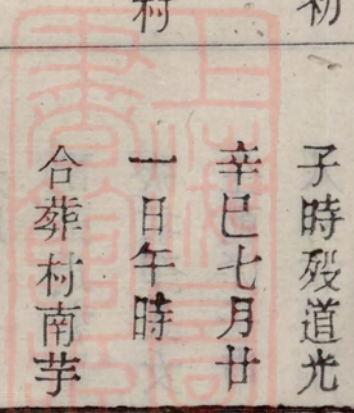 初
子時殁道光
辛巳七月廿
一日午時
村
合葬村南芋